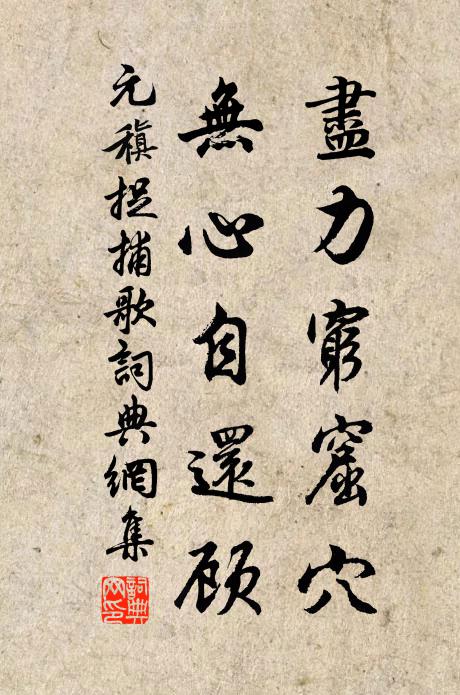 盡力窮窟穴
無心自還顧
元稹捉捕歌詞典網集
詞典網印